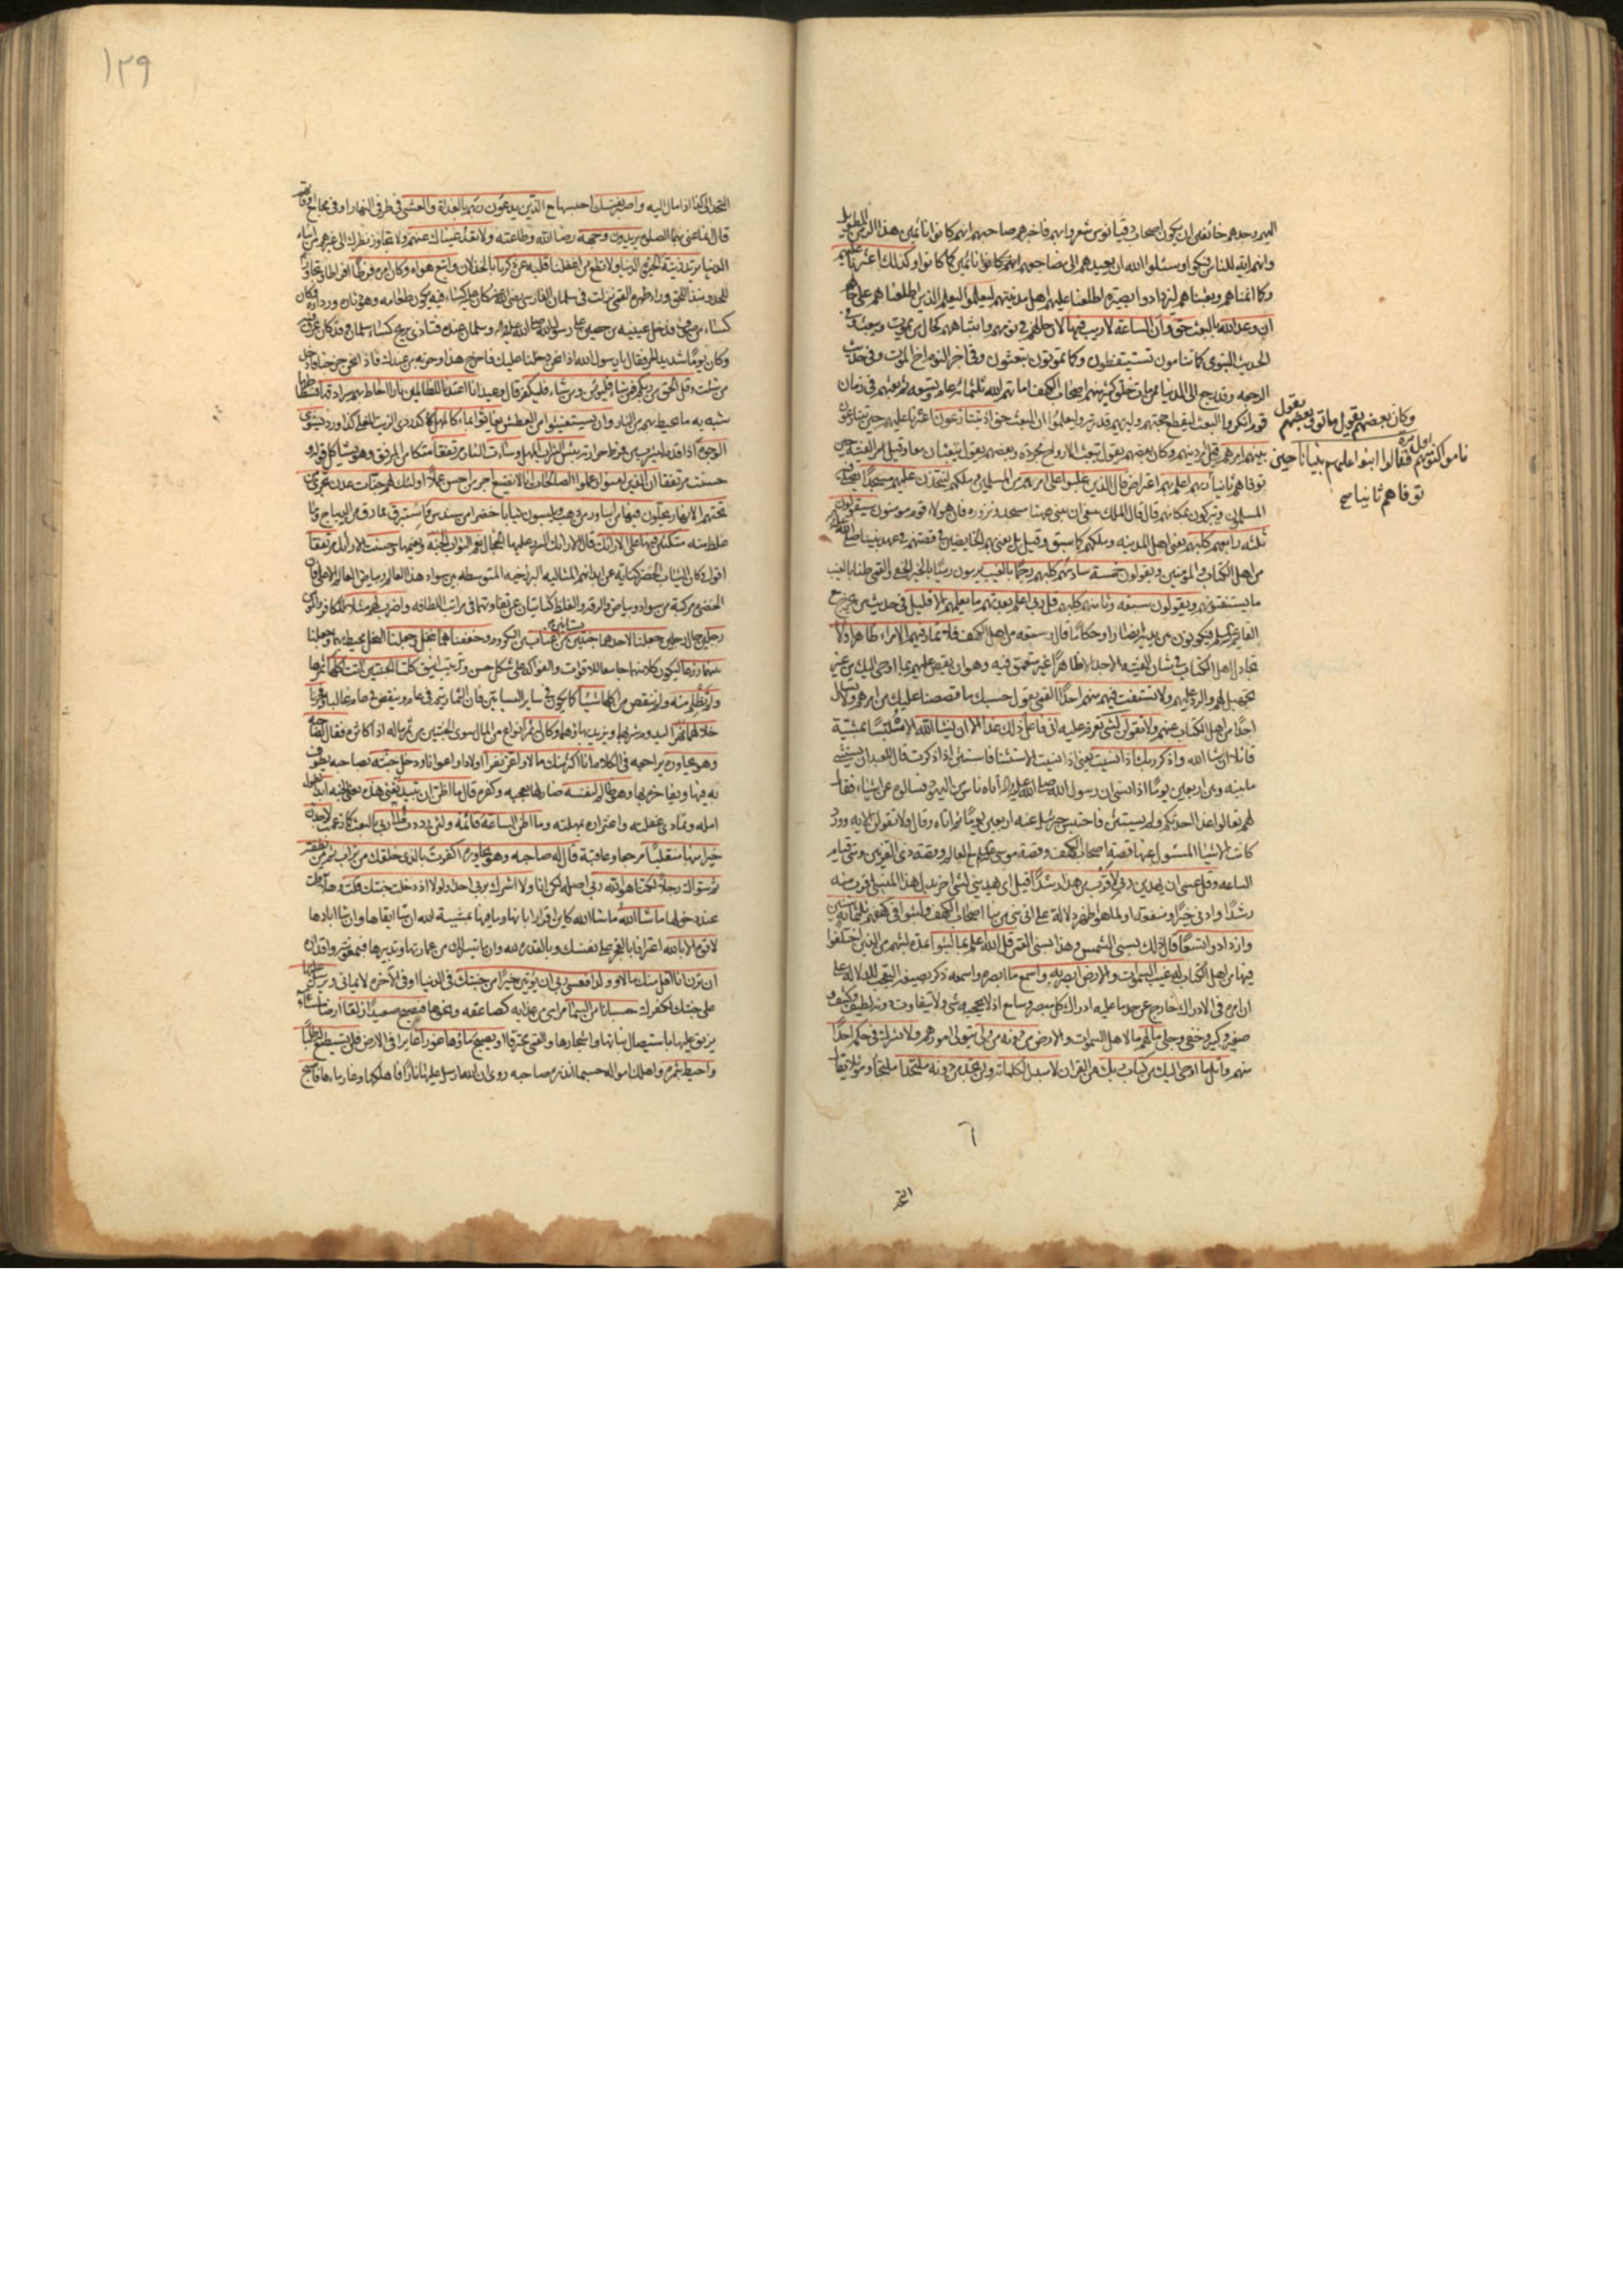 اليهم وجدهم خائفين ان يكون اصحاب دقيانوس شعروا بهم فاخبرهم صاحبهم انهم كانوا نائمين هذا الزمن الطويل
وانهم اية للناس فبكوا وسئلوا الله ان يعيدهم الى مضاجعهم نائمين كما كانوا وكذلك اعثرنا عليهم
وكما انمناهم وبعثناهم ليزدادوا بصيرة اطلعنا عليهم اهل مدينتهم ليعلموا ليعلم الذين اطلعناهم على حالهم
ان وعد الله بالبعث حق وان الساعة لا ريب فيها لان حالهم في نومهم وانتباههم كحال من يموت ويبعث وفي
الحديث النبوي كما تنامون تستيقظون وكما تموتون تبعثون وفي اخر النوم اخ الموت وفي حديث
الرجعه وقد رجع الى الدنيا ممن مات خلق كثير منهم اصحاب الكهف اماتهم الله ثلثمائة عام وتسعه ثم بعثهم في زمان
قوم انكروا البعث ليقطع حجتهم وليريهم قدرته وليعلموا ان البعث حق اذ يتنازعون اعثرنا عليهم حين يتنازعون
بينهم امرهم قيل امر دينهم وكان بعضهم يقول تبعث الارواح مجردة وبعضهم يقول تبعثان معا وقيل امر الفتية حين
توفاهم ثانيا ربهم اعلم بهم اعتراض قال الذين غلبوا على امرهم من المسلمين وملكهم لنتخذن عليهم مسجدا يصلي فيه
المسلمون ويتبركون بمكانهم قال قال الملك ينبغي ان نبني ههنا مسجد ونزوره فان هؤلاء قوم مومنون سيقولون
ثلثه رابعهم كلبهم يعني اهل المدينه وملكهم كما سبق وقيل بل يعني بهم الخايضين في قصتهم في عهد نبينا
من اهل الكتاب والمؤمنين ويقولون خمسة سادسهم كلبهم رجما بالغيب يرمون رميا بالخبر الخفي القمي ظنا بالغيب
ما يستفتونهم ويقولون سبعه وثامنهم كلبهم قل ربي اعلم بعدتهم ما يعلمهم الا قليل
قال فلا تمار فيهم الا مراء ظاهرا ولا
تجادل اهل الكتاب في شان الفتية الا جدالا ظاهرا غير متعمق فيه وهو ان تقص عليهم بما اوحي اليك من غير
تجهيل لهم والرد عليهم ولا تستفت فيهم منهم احدا القمي يقول حسبك ما قصصنا عليك من امرهم ولا تسأل
احدا من اهل الكتاب عنهم ولا تقولن لشي تعزم عليه اني فاعل ذلك غدا الا ان يشا الله الا متلبسا بمشية
قائلا ان شا الله واذكر ربك اذا نسيت يعني اذا نسيت الاستثنا فاستثن اذا ذكرت قال للعبد ان يستثني
ما بينه وبين اربعين يوما اذا نسي ان رسول الله صلى الله عليه واله اتاه ناس من اليهود فسالوه عن اشياء فقال
لهم تعالوا غدا احدثكم ولم يستثن فاحتبس جبرئيل عنه اربعين يوما ثم اتاه وقال ولا تقولن الايه وورد
كانت الاشيا المسئول عنها قصة اصحاب الكهف وقصة موسى مع العالم وقصة ذي القرنين ومتى قيام
الساعه وقل عسى ان يهدين ربي لاقرب من هذا رشدا قيل اي يهديني لشي اخر بدل هذا المنسي اقرب منه
رشدا وادنى خيرا ومنفعة او لما هو اظهر دلالة على اني نبي من نبا اصحاب الكهف ولبثوا في كهفهم ثلثمائة سنين
وازدادوا تسعا قال ذلك بسني الشمس وهذا بسني القمر قل الله اعلم بما لبثوا عدة لبثهم من الذين اختلفوا
فيها من اهل الكتاب له غيب السموات والارض ابصر به واسمع ما ابصره واسمعه ذكر بصيغة التعجب للدلالة على
ان امره في الادراك خارج عن حد ما عليه ادراك كل مبصر وسامع اذ لا يحجبه شي ولا يتفاوت دونه لطيف وكثيف و
صغير وكبير وخفي وجلي ما لهم ما لاهل السموات والارض من دونه من ولي يتولى امورهم ولا يشرك في حكمه احدا
منهم واتل ما اوحي اليك من كتاب ربك من القران لا مبدل لكلماته ولن تجد من دونه ملتحدا ملتجأ وموئلا يقال
وكان بعضهم يقول ماتوا وبعضهم يقول
ناموا كنومهم اول مرة فقالوا ابنوا عليهم بنيانا حين
توفاهم ثانيا صح
التحد
١٢٩
التحد الى كذا اذا مال اليه واصبر نفسك احبسها مع الذين يدعون ربهم بالغداة والعشي في طرفي النهار او في مجامع اوقاتهم
قال انما عنى بهما الصلوة يريدون وجهه رضا الله وطاعته ولا تعد عيناك عنهم ولا تجاوز نظرك الى غيرهم من ابناء
الدنيا تريد زينة الحيوة الدنيا ولا تطع من اغفلنا قلبه عن ذكرنا بالخذلان واتبع هواه وكان امره فرطا افراطا وتجاوزا
للحد ونبذا للحق وراء ظهره القمي نزلت في سلمان الفارسي رضي الله عنه كان عليه كساء فيه يكون طعامه وهو دثاره ورداؤه وكان
كساء من صوف فدخل عيينه بن حصين على رسول الله صلى الله عليه واله وسلمان عنده فتاذى بريح كساء سلمان وقد كان عرق فيه
وكان يوما شديد الحر فقال يا رسول الله اذا نحن دخلنا عليك فاخرج هذا وحزبه من عندك فاذا نحن خرجنا فادخل
من شئت وقل الحق من ربكم فمن شاء فليؤمن ومن شاء فليكفر قال وعيد انا اعتدنا للظالمين نارا احاط بهم سرادقها فسطاطها
شبه به ما يحيط بهم من النار وان يستغيثوا من العطش يغاثوا بماء كالمهل كدردي الزيت المغلى كذا ورد يشوي
الوجوه اذا قدم ليشرب من فرط حرارته بئس الشراب المهل وساءت النار مرتفقا متكا من المرفق وهو يشاكل قوله و
حسنت مرتفقا ان الذين امنوا وعملوا الصالحات انا لا نضيع اجر من احسن عملا اولئك لهم جنات عدن تجري من
تحتهم الانهار يحلون فيها من اساور من ذهب ويلبسون ثيابا خضرا من سندس واستبرق مما رق من الديباج وما
غلظ منه متكئين فيها على الارائك قال الارائك السرر عليها الحجال نعم الثواب الجنة ونعيمها وحسنت الارائك مرتفقا
اقول وكان الثياب الخضر كناية عن ابدانهم المثاليه البرزخيه المتوسطه بين سواد هذا العالم وبياض العالم الاعلى فان
الخضرة مركبة من سواد وبياض والرقة والغلظ كنايتان عن تفاوتهما في مراتب اللطافه واضرب لهم مثلا للكافر والمؤمن
رجلين حال رجلين جعلنا لاحدهما جنتين بستانين من اعناب من الكروم وحففناهما بنخل وجعلنا النخل محيطة بهما وجعلنا
بينهما زرعا ليكون كل منهما جامعا للاقوات والفواكه على شكل حسن وترتيب انيق كلتا الجنتين اتت اكلها ثمرها
ولم تظلم منه ولم تنقص من اكلها شيئا كما يكون في سائر البساتين فان الثمار تتم في عام وتنقص في عام غالبا وفجرنا
خلالهما نهرا ليدوم شربهما ويزيد بهاؤهما وكان له ثمر انواع من المال سوى الجنتين من ثمر ماله اذا كثره فقال لصاحبه
وهو يحاوره يراجعه في الكلام انا اكثر منك مالا واعز نفرا اولادا واعوانا ودخل جنته بصاحبه يطوف
به فيها ويفاخره بها وهو ظالم لنفسه ضار لها بعجبه وكفره قال ما اظن ان تبيد تفنى هذه يعني الجنة ابدا لطول
امله وتمادي غفلته واغتراره بمهلته وما اظن الساعة قائمة ولئن رددت الى ربي بالبعث كما زعمت لاجدن
خيرا منها منقلبا مرجعا وعاقبة قال له صاحبه وهو يحاوره اكفرت بالذي خلقك من تراب ثم من نطفة
ثم سواك رجلا لكنا هو الله ربي اصله لكن انا ولا اشرك بربي احدا ولولا اذ دخلت جنتك قلت هلا قلت
عند دخولها ما شاء الله ما شاء الله كاين اقرارا بانها وما فيها بمشية الله ان شا ابقاها وان شا ابادها
لا قوة الا بالله اعترافا بالعجز على نفسك وبالقدرة لله وان ما تيسر لك من عمارتها وتدبيرها فبمعونته واقداره
ان ترن انا اقل منك مالا وولدا فعسى ربي ان يؤتين خيرا من جنتك في الدنيا او في الاخرة لايماني ويرسل عليها
على جنتك لكفرك حسبانا من السماء مرامي من عذابه كصاعقه ونحوها فتصبح صعيدا زلقا ارضا ملساء
يزلق عليها باستيصال نباتها واشجارها والقمي محترقا او يصبح ماؤها غورا غايرا في الارض فلن تستطيع له طلبا
واحيط بثمره واهلك امواله حسبما انذره صاحبه روي ان الله ارسل عليها نارا فاهلكها وغار ماءها فاصبح